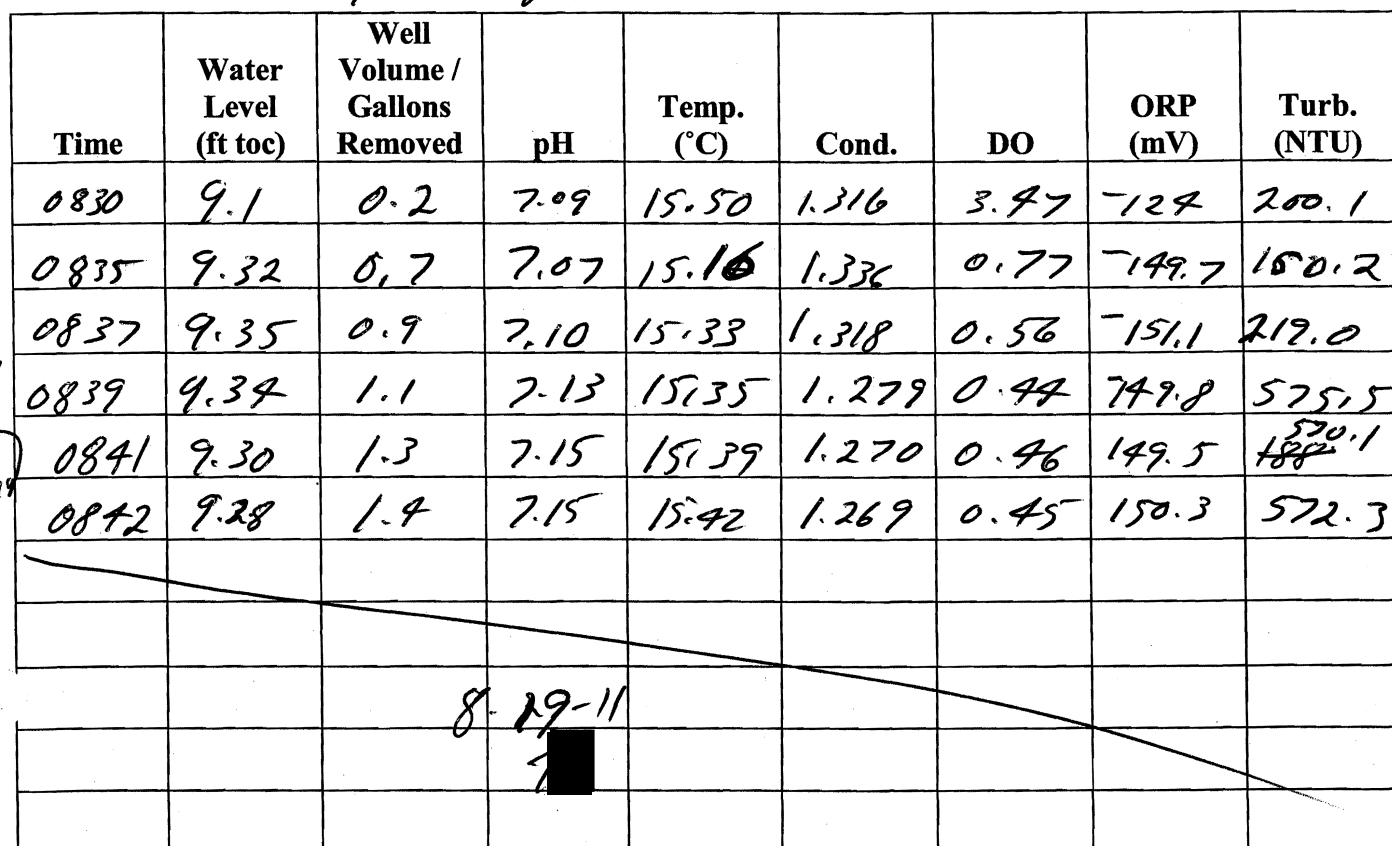 Time Water Level (ft toc) Well Volume / Gallons Removed pH Temp. (°C) Cond. DO ORP (mV) Turb. (NTU)
0830 9.1 0.2 7.09 15.50 1.316 3.47 -124 200.1
0835 9.32 0,7 7.07 15.16 1.336 0.77 -149.7 150.2
0837 9.35 0.9 7.10 15.33 1.318 0.56 -151.1 219.0
0839 9.34 1.1 7.13 15.35 1.279 0.44 -149.8 575.5
0841 9.30 1.3 7.15 15.39 1.270 0.46 149.5 570.1
0842 9.28 1.4 7.15 15.42 1.269 0.45 150.3 572.3
8-29-11